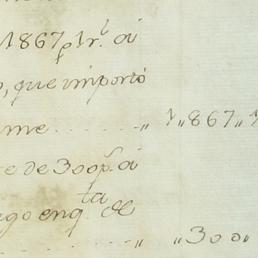 1867 p 1 r.l á
, que importó
me ...... „ 1„867„1
e de 300 p.s á
ago en q.ta de
...... „ „300„